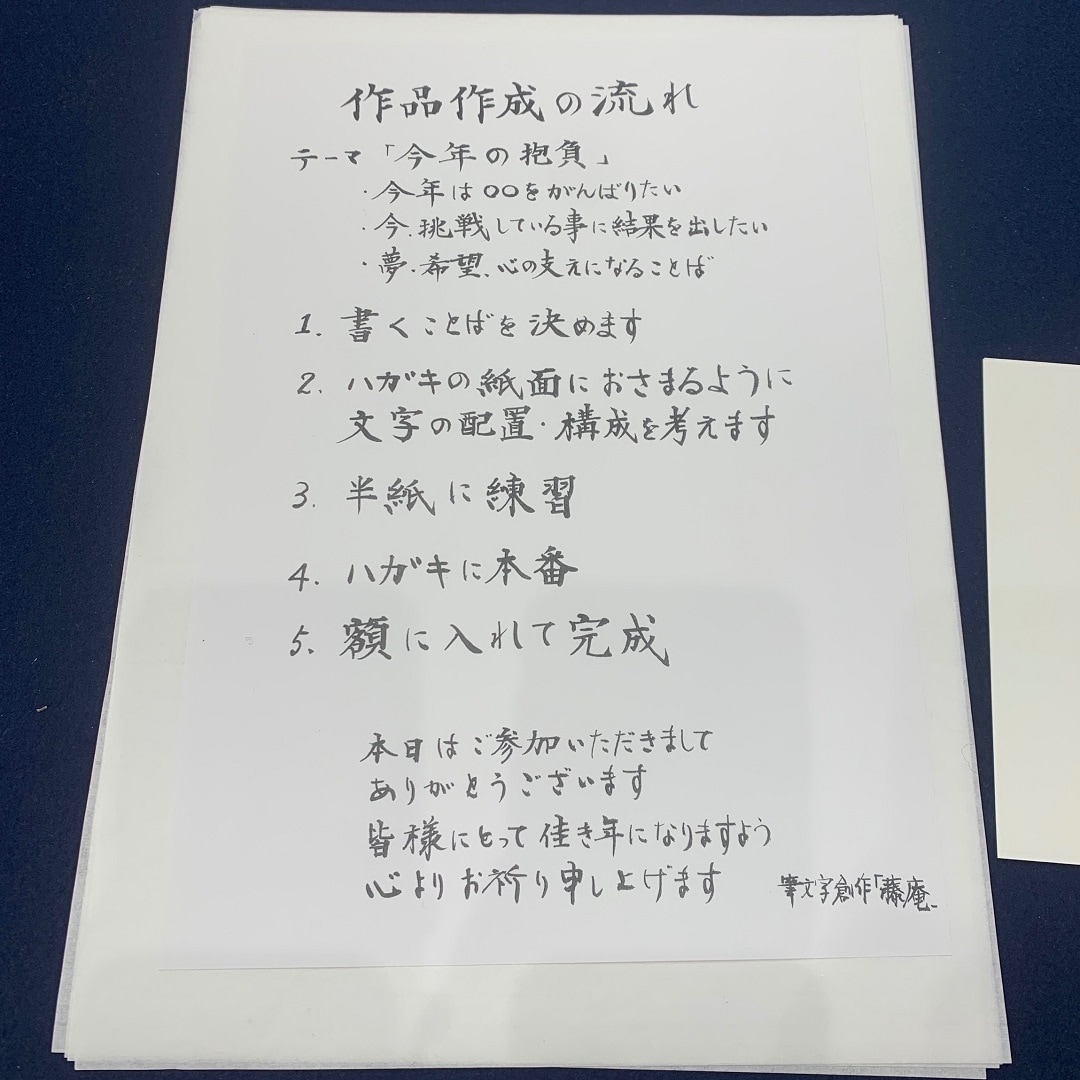 作品作成の流れ
テーマ「今年の抱負」
・今年は〇〇をがんばりたい
・今、挑戦している事に結果を出したい
・夢・希望、心の支えになることば
1. 書くことばを決めます
2. ハガキの紙面におさまるように
文字の配置・構成を考えます
3. 半紙に練習
4. ハガキに本番
5. 額に入れて完成
本日はご参加いただきまして
ありがとうございます
皆様にとって佳き年になりますよう
心よりお祈り申し上げます
筆文字創作「藤庵」